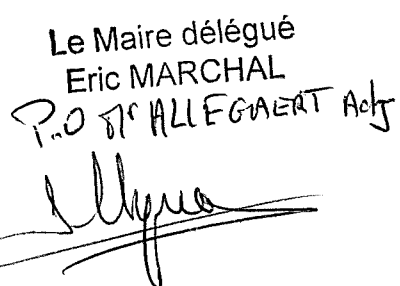 Le Maire délégué
Eric MARCHAL
P.O Mr ALLEGAERT Adj